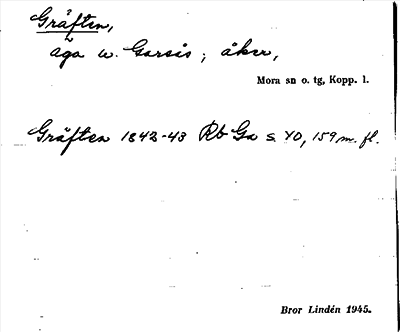 Gräften,
äga w. Garsås; åker,
Mora sn o. tg, Kopp. l.
Gräften 1842-43 Rb Ga s 40, 159 m. fl.
Bror Lindén 1945.